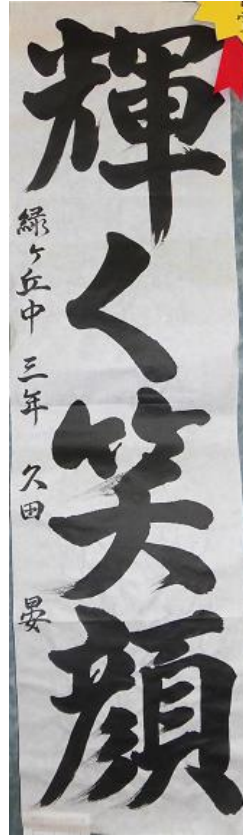 輝く笑顔
緑ヶ丘中 三年 久田 晏